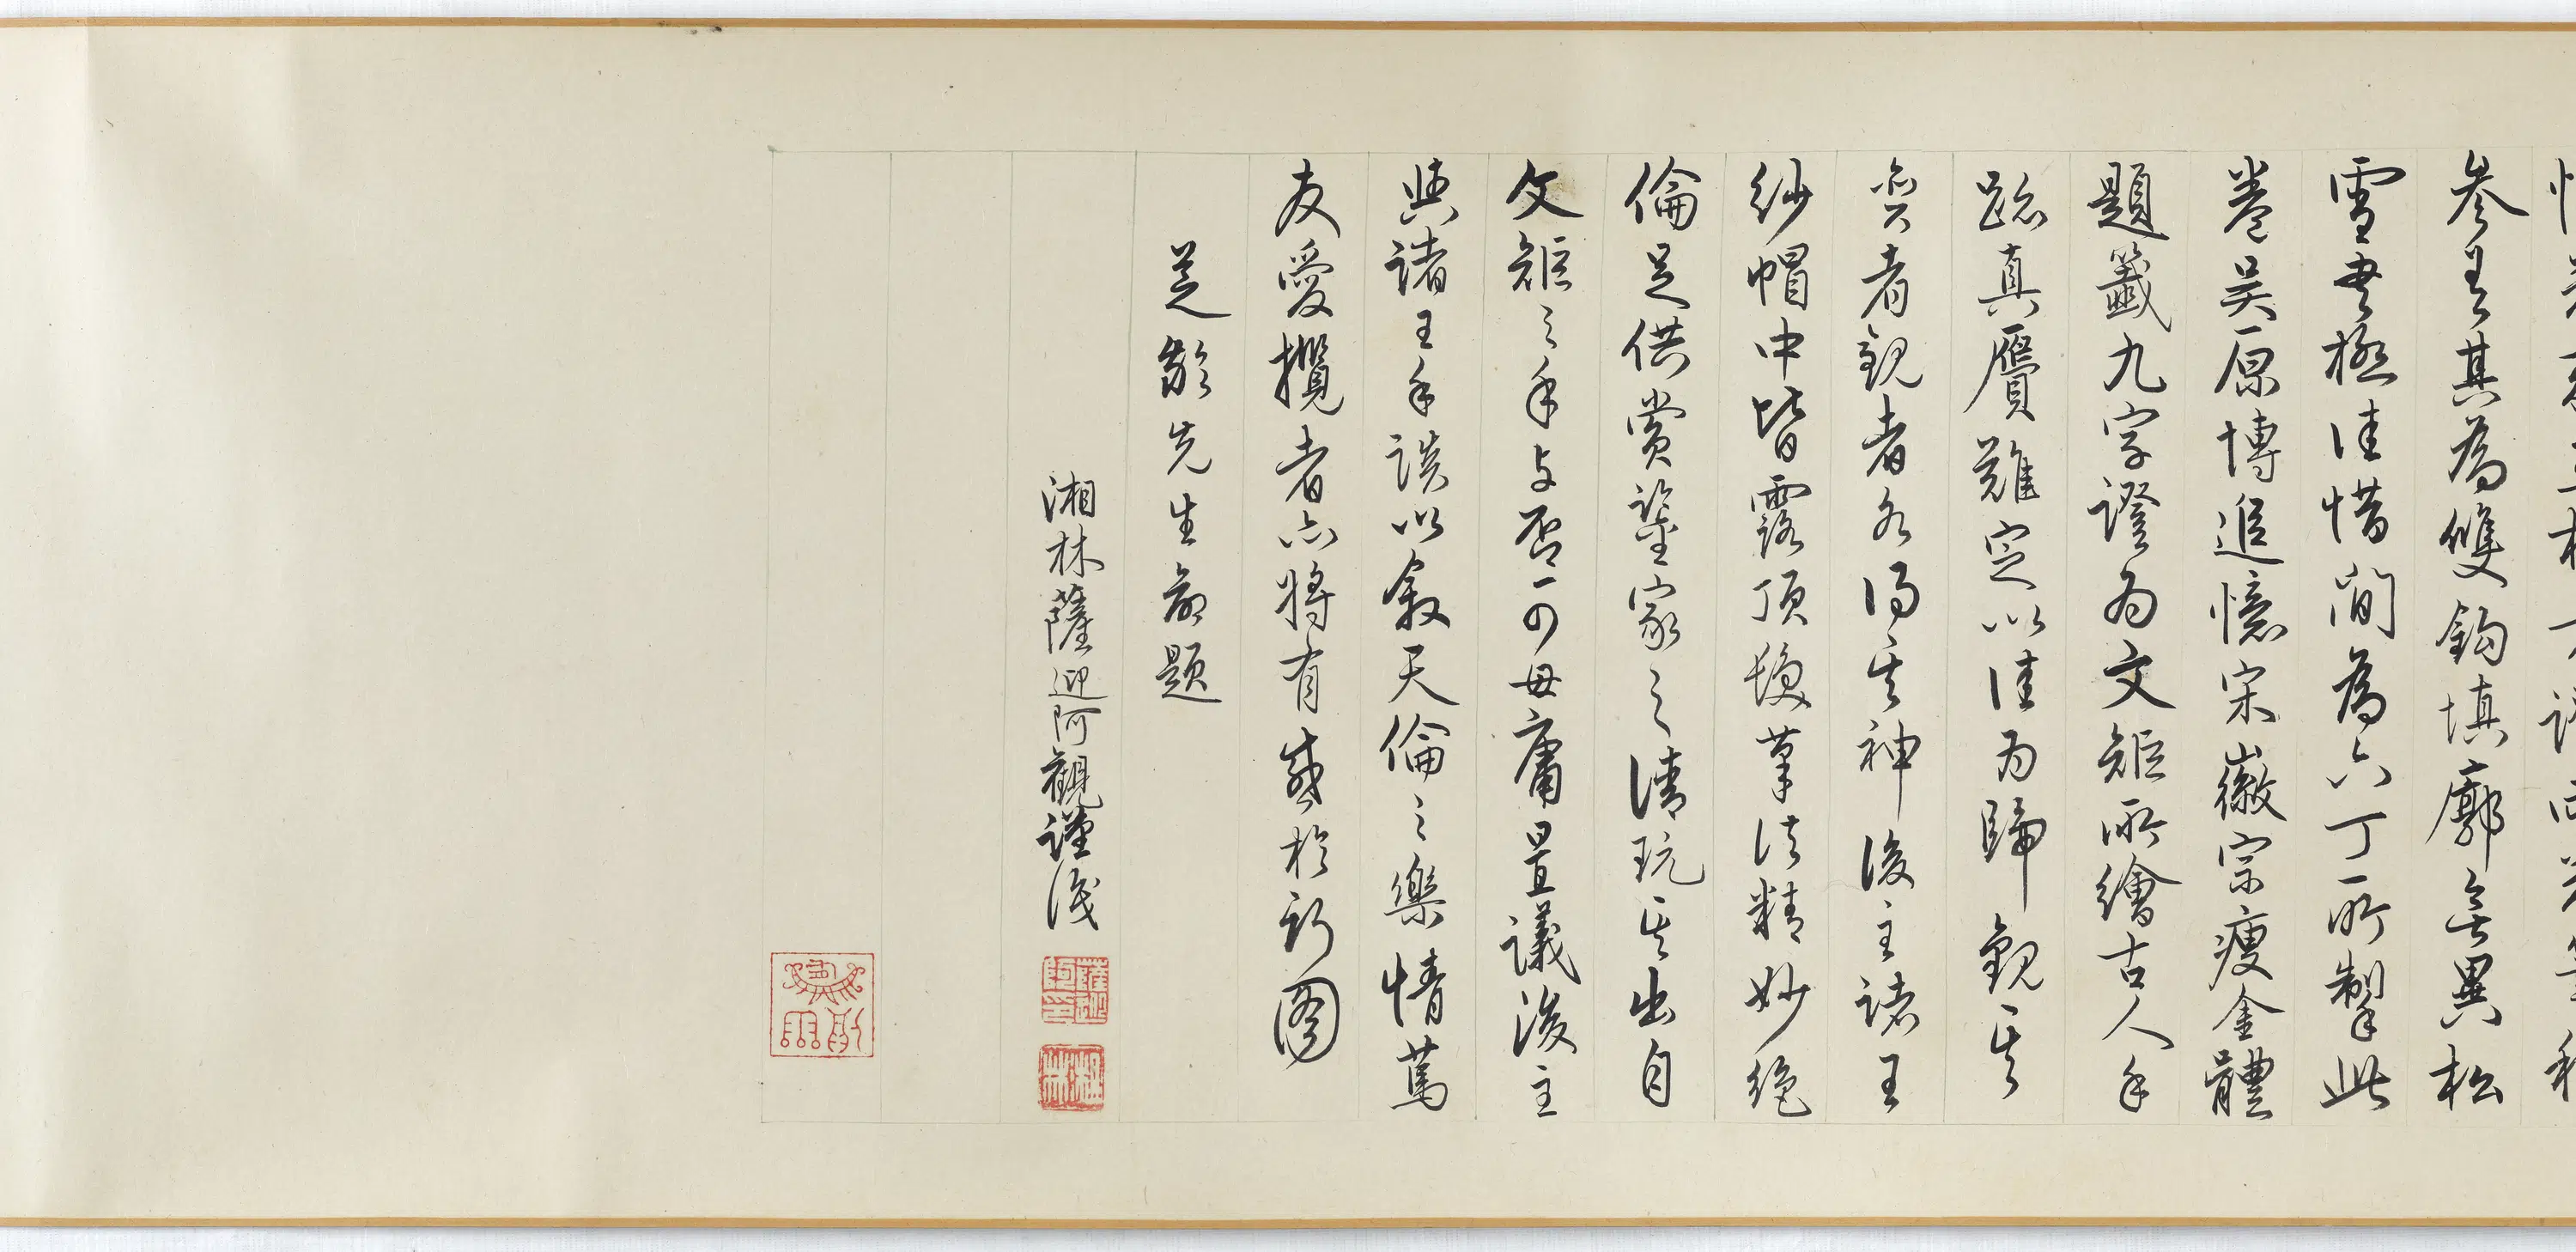 參其為雙鈎填廓無異松
雪書極佳惜間為六丁所掣此
卷吳原博追憶宋徽宗瘦金體
題籤九字證為文矩所繪古人手
跡真贗難定以佳為歸觀其
畫者觀者各得其神後主諸王
紗帽中皆露頂髮筆法精妙絕
倫足供賞鑒家之清玩其出自
文矩之手与否可毋庸置議後主
與諸王手談以敘天倫之樂情篤
友愛攬者亦將有感於斯圖
芝齡先生命題
湘林薩迎阿觀謹識
薩迎阿印
湘林